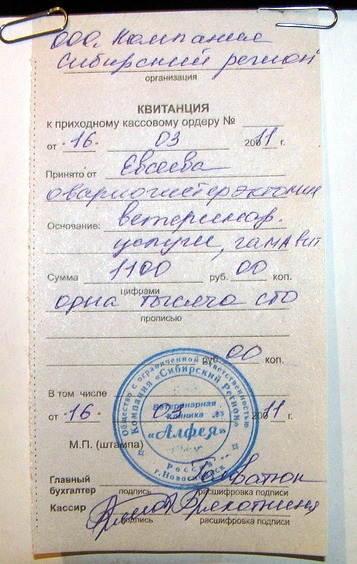 ООО, Компания
Сибирский регион
организация
КВИТАНЦИЯ
к приходному кассовому ордеру №
от "16." 03 2011 г.
Принято от Евсеева
овариогистерэктомия
Основание: ветеринар.
услуги, гамавит
Сумма 1100 руб. 00 коп.
цифрами
одна тысяча сто
прописью
руб. 00 коп.
В том числе
от "16." 03 2011 г.
М.П. (штампа)
Общество с ограниченной ответственностью
Компания «Сибирский Регион»
Ветеринарная
клиника
«Алфея»
Россия
г. Новосибирск
Главный
бухгалтер
подпись расшифровка подписи
Кассир
подпись расшифровка подписи